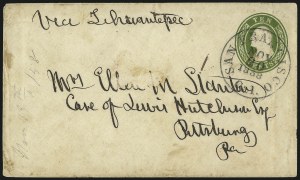 Via Tehuantepec
SAN FRANCISCO
Mrs Ellen M Stanton
Care of Lewis Hutchison Esq
Pittsburg
Pa